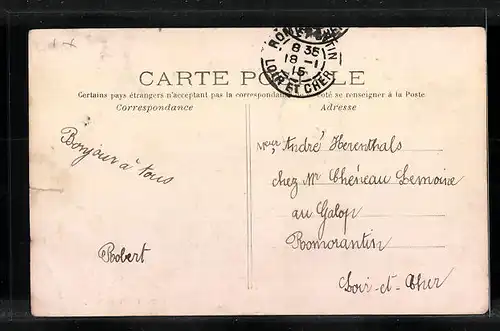 ROMORANTIN
8 35
18 - 1
15
LOIR ET CHER
CARTE POSTALE
Certains pays étrangers n'acceptant pas la correspondance se renseigner à la Poste
Correspondance
Adresse
Bonjour à tous
Robert
Monsr André Herenthals
chez Mr Chéneau Lemoine
au Galop
Romorantin
Loir-et-Cher